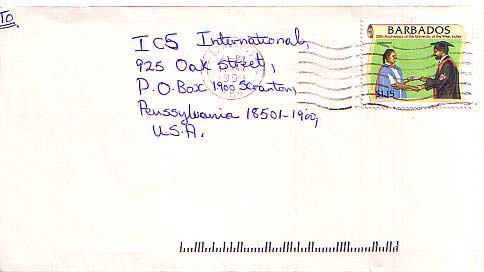 To,
BARBADOS
50th Anniversary of the University of the West Indies
ICS International,
925 Oak Street,
P.O.Box 1900 Scranton,
Pennsylvania 18501-1900,
U.S.A.
$1.15